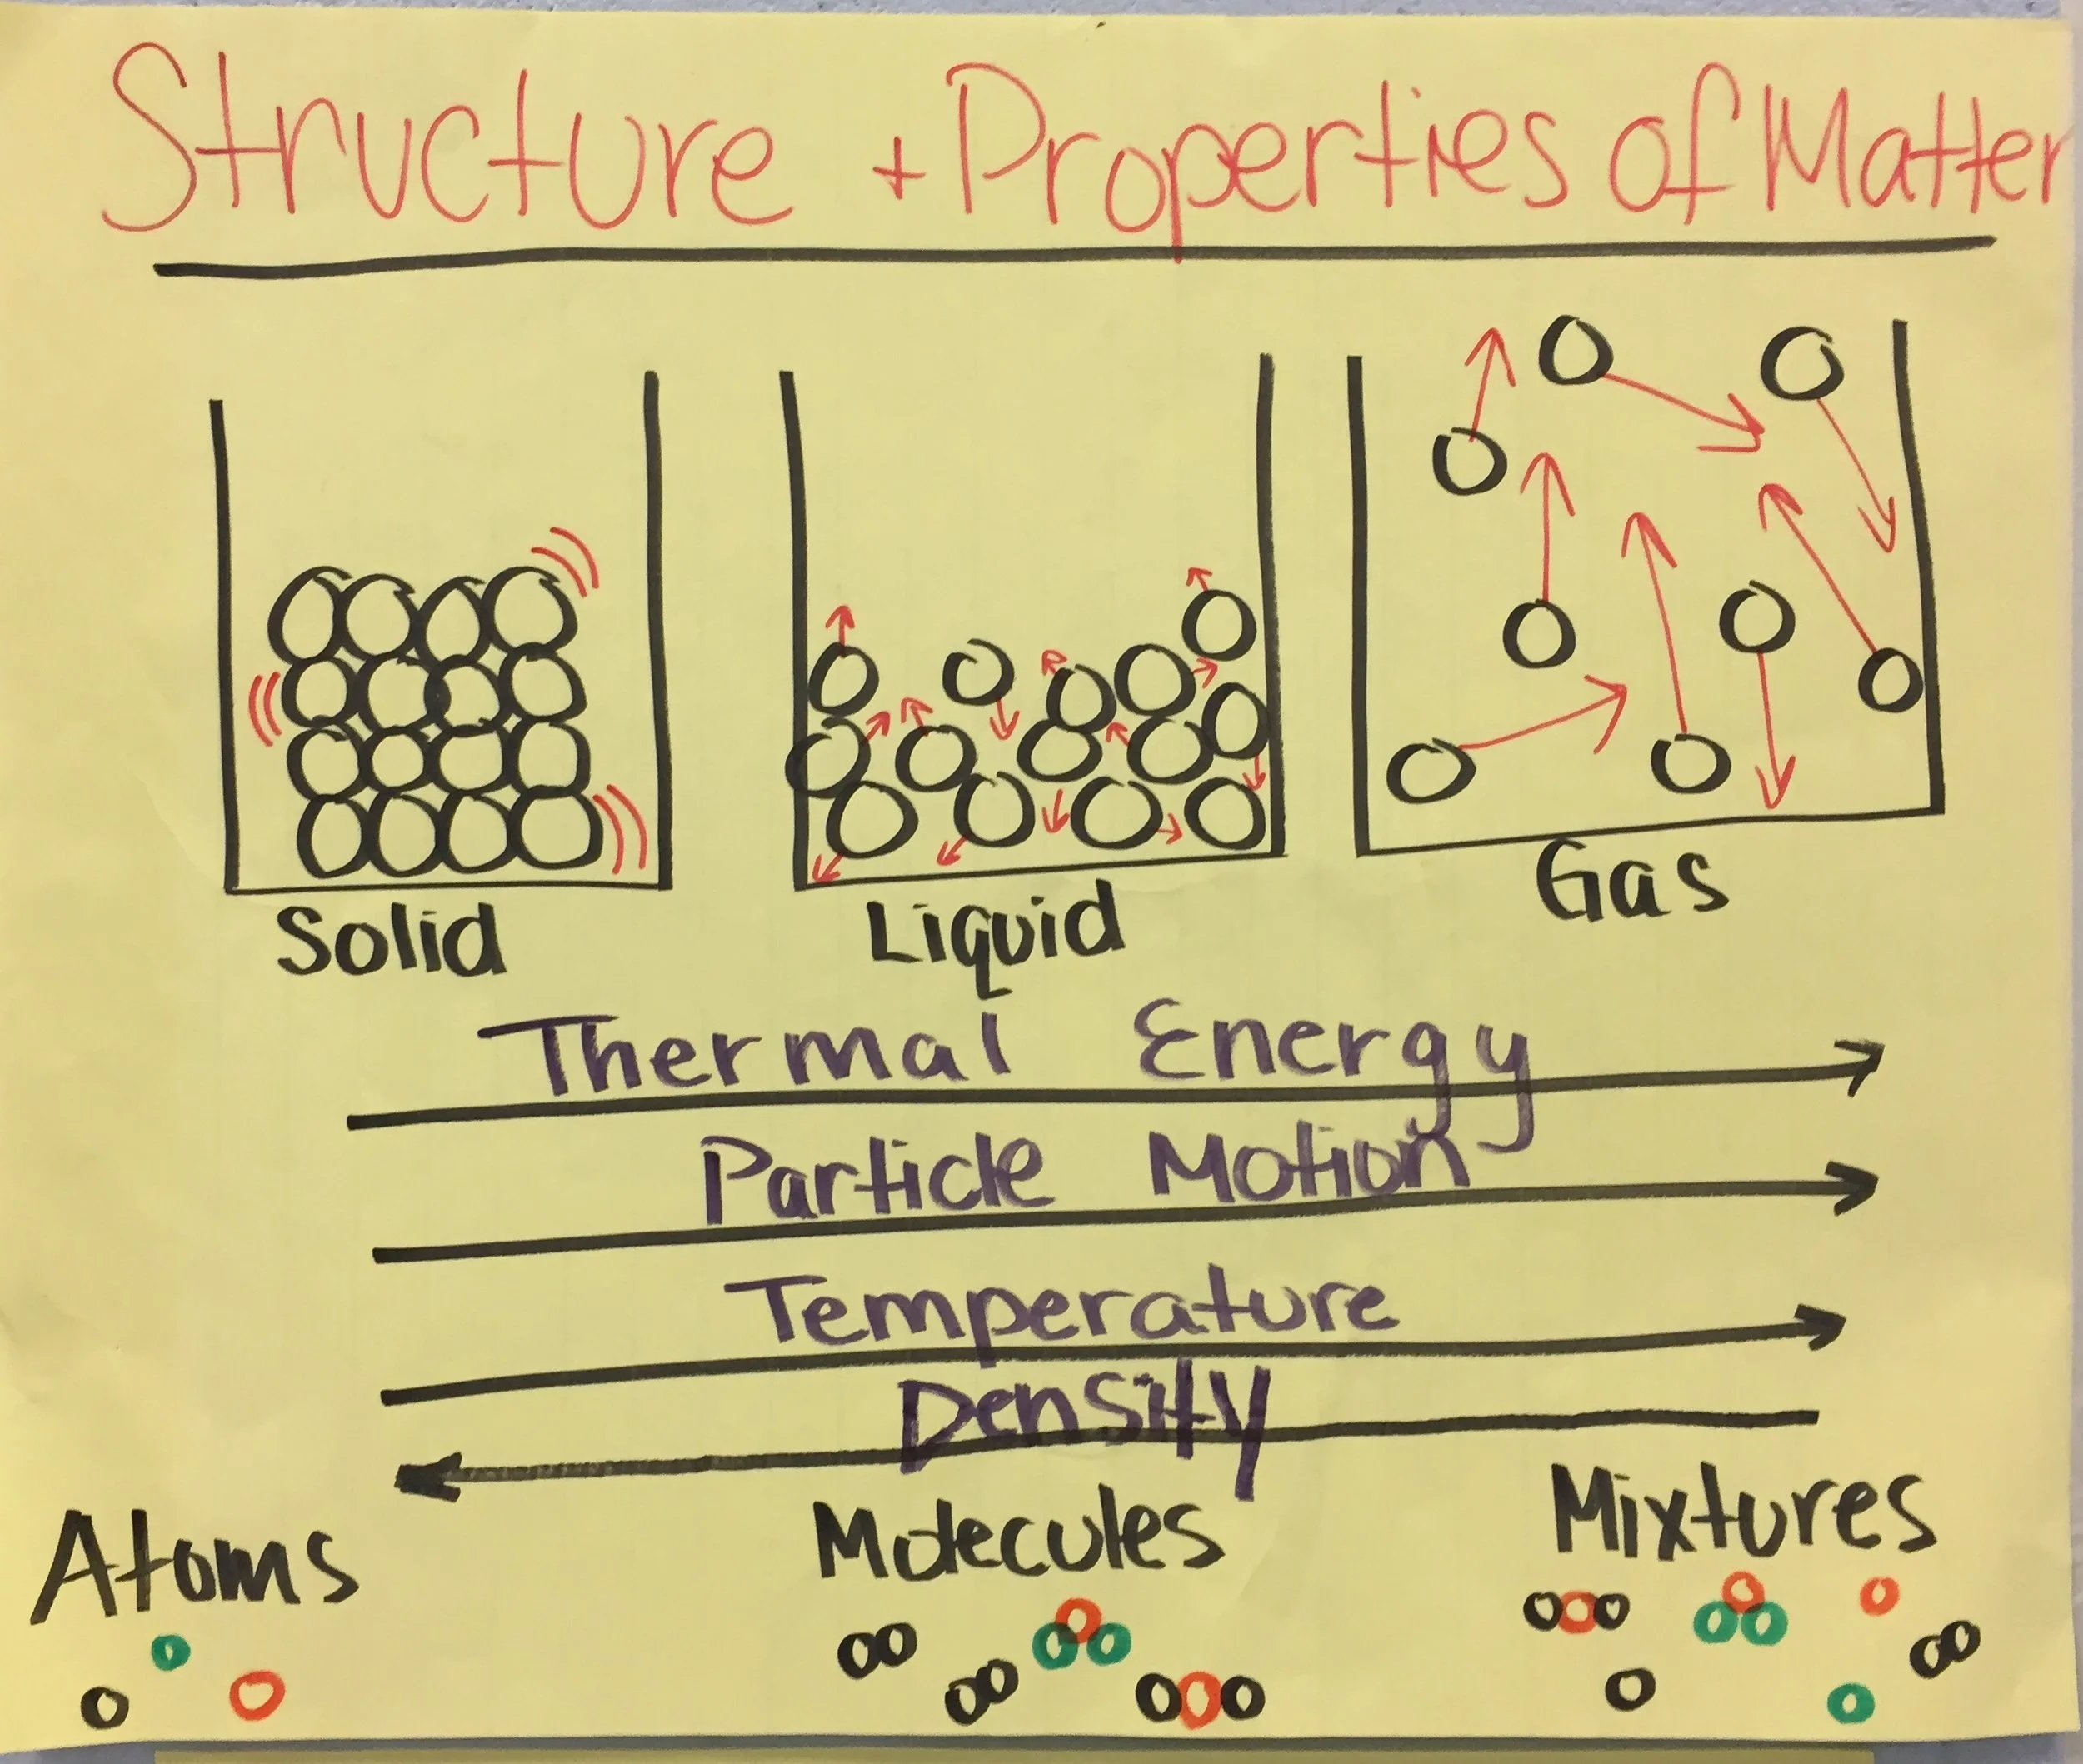 Structure + Properties of Matter
Solid
Liquid
Gas
Thermal Energy
Particle Motion
Temperature
Density
Atoms
Molecules
Mixtures